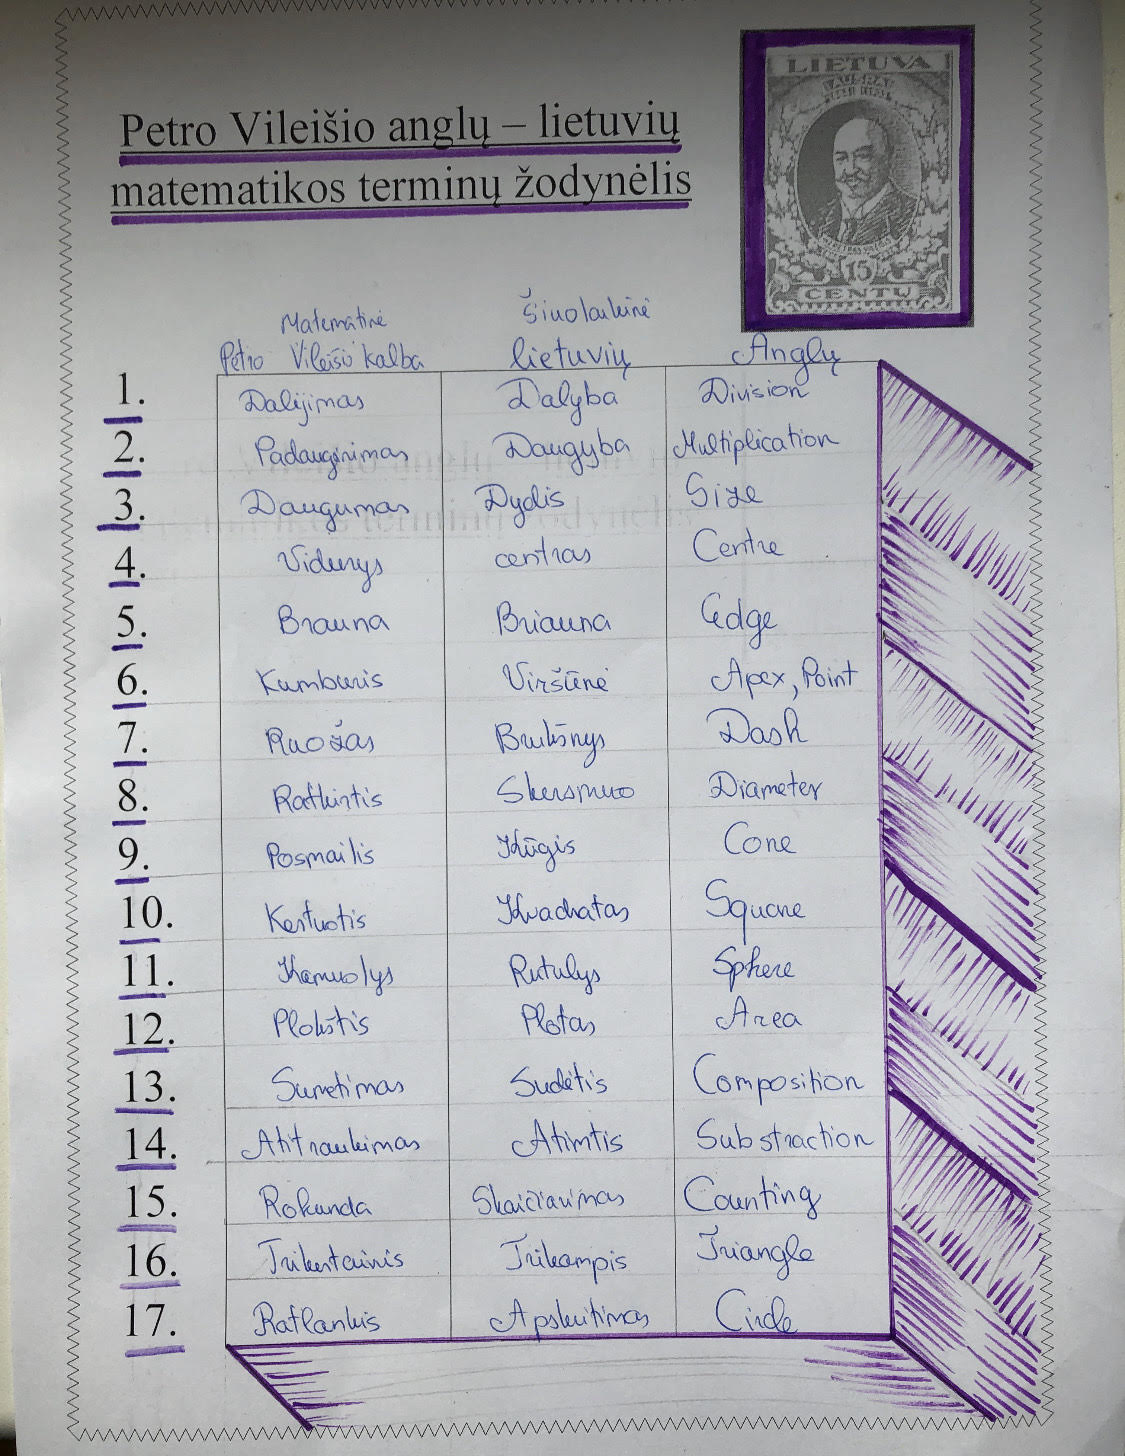 LIETUVA
15
CENTŲ
Petro Vileišio anglų – lietuvių
matematikos terminų žodynėlis
Matematinė Petro Vileišio kalba Šiuolaikinė lietuvių Anglų
1. Dalijimas Dalyba Division
2. Padauginimas Daugyba Multiplication
3. Daugumas Dydis Size
4. Vidurys centras Centre
5. Brauna Briauna Edge
6. Kumburis Viršūnė Apex, Point
7. Ruožas Brūkšnys Dash
8. Ratkirtis Skersmuo Diameter
9. Posmailis Kūgis Cone
10. Kertuotis Kvadratas Square
11. Kamuolys Rutulys Sphere
12. Plokštis Plotas Area
13. Sumetimas Sudėtis Composition
14. Atitraukimas Atimtis Substraction
15. Rokunda Skaičiavimas Counting
16. Trikertainis Trikampis Triangle
17. Ratlankis Apskritimas Circle